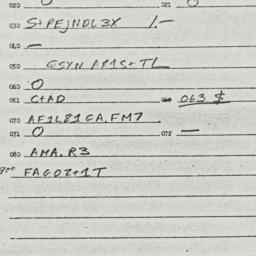 020 0 021 0
030 S+PEJNDL3X 1.—
040 —
050 GSYN AP1S+TL
060 0
061 C+AD 063 $
070 AF1L81CA.FM7
071 0 072 —
080 AMA.R3
900 FAGOZ+1T